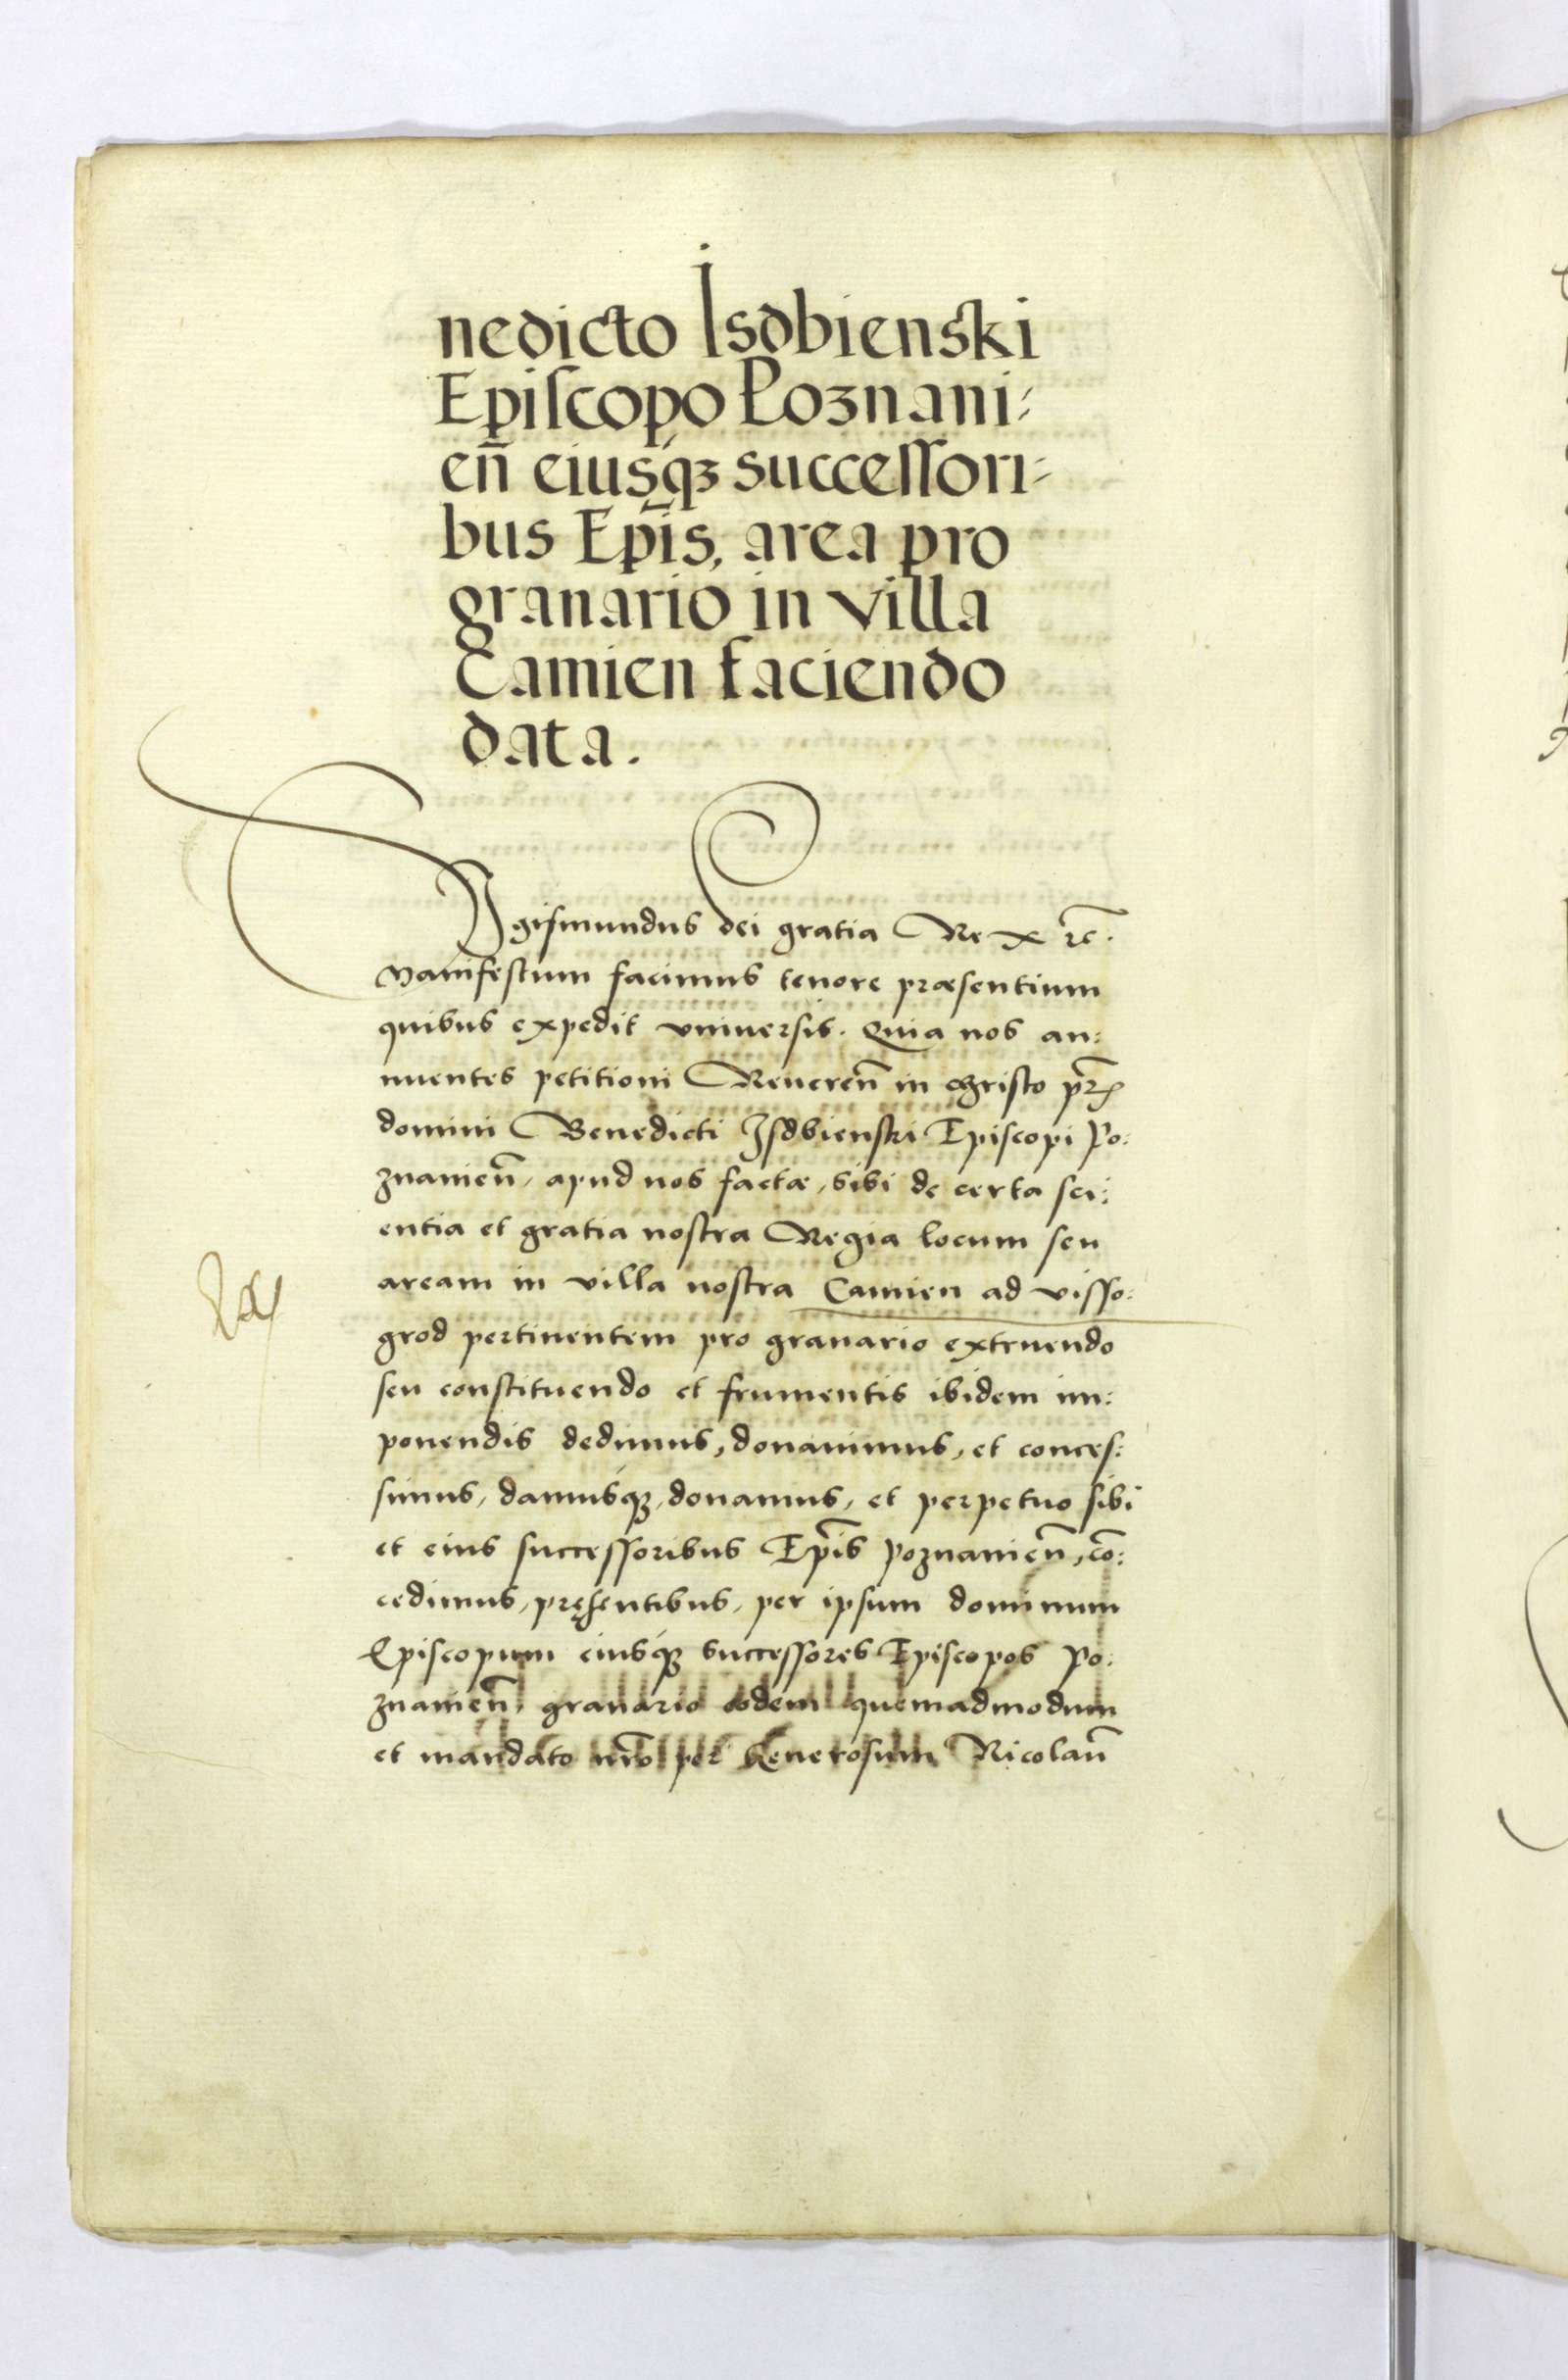 nedicto Isdbienski
Episcopo Poznani⸗
en̄ eiusq́ꝫ successori⸗
bus Ep̄is, area pro
granario in villa
Camien faciendo
data.
Sigismundus dei gratia Rex ꝛc̄.
Manifestum facimus tenore præsentium
quibus expedit vniuersis. Quia nos an:
nuentes petitioni Reueren̄ in christo pr̄is
domini Benedicti Isdbienski Episcopi Po:
znanien̄, apud nos factæ, sibi de certa sci:
entia et gratia nostra Regia locum seu
aream in villa nostra Camien ad visso:
grod pertinentem pro granario extruendo
seu constituendo et frumentis ibidem im:
ponendis dedimus, donauimus, et conces:
simus, damusq́ꝫ, donamus, et perpetuo sibi
et eius successoribus Ep̄is Poznanien̄, cō:
cedimus, pręsentibus, per ipsum dominum
Episcopum eiusq́ꝫ successores Episcopos Po:
znanien̄, granario eodem quemadmodum
et mandato nr̄o per Generosum Nicolaū